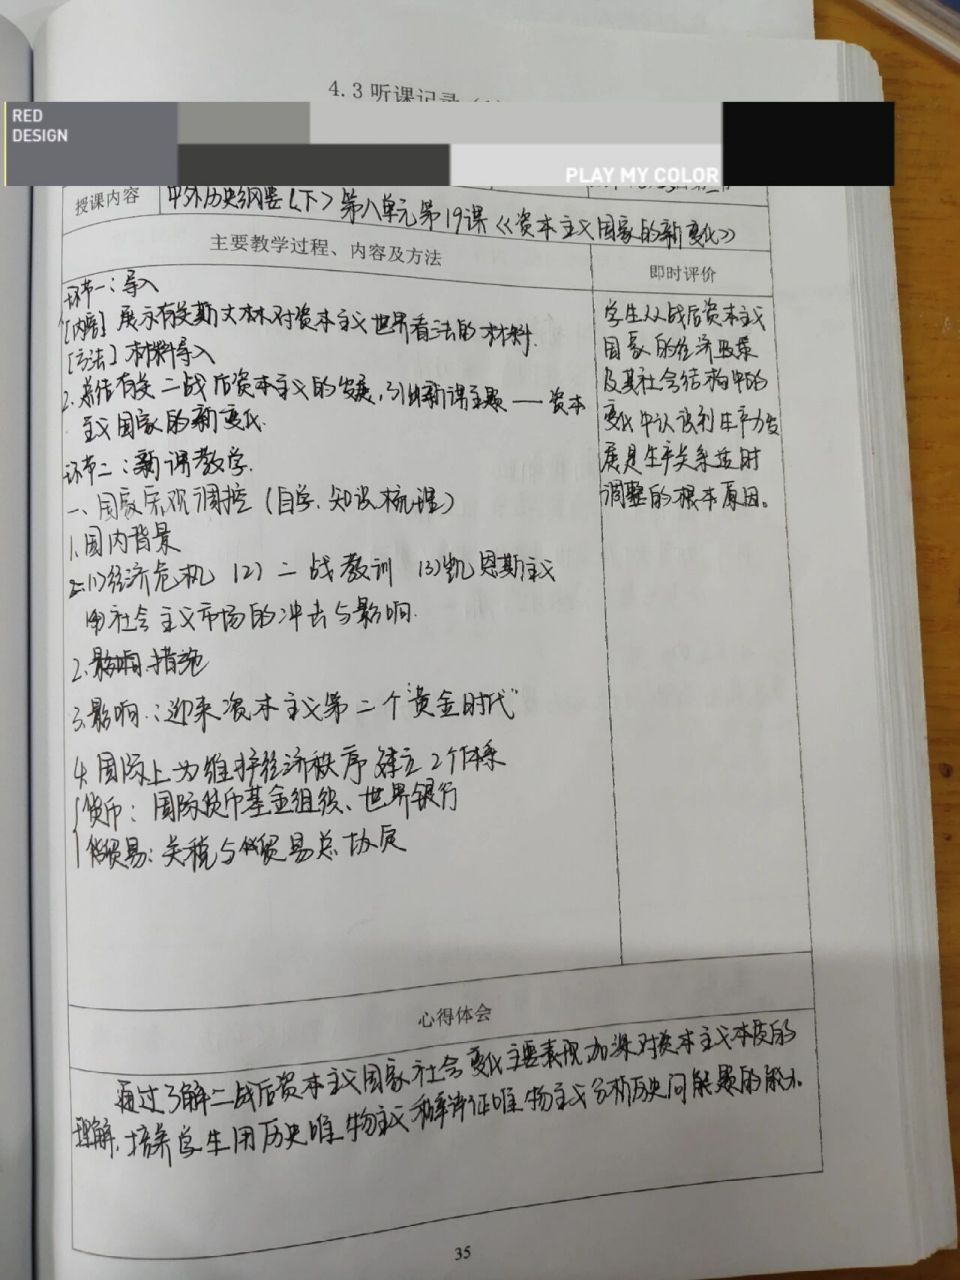 4.3 听课记录
RED
DESIGN
PLAY MY COLOR
授课内容 中外历史纲要(下) 第八单元第19课《资本主义国家的新变化》
主要教学过程、内容及方法
即时评价
环节一：导入
[内容] 展示有关斯大林对资本主义世界看法的材料.
[方法] 材料导入
2. 总结有关二战后资本主义的发展，引出新课主题——资本
主义国家的新变化.
环节二：新课教学.
一、国家宏观调控（自学、知识梳理）
1. 国内背景
(1)经济危机 (2) 二战教训 (3)凯恩斯主义
(4)社会主义市场的冲击与影响.
2. 措施
3. 影响：迎来资本主义第二个"黄金时代"
4. 国际上为维护经济秩序建立2个体系
货币：国际货币基金组织、世界银行
贸易：关税与贸易总协定
学生从战后资本主义
国家的经济政策
及其社会结构中的
变化中认识到生产力发
展是生产关系适时
调整的根本原因。
心得体会
通过了解二战后资本主义国家社会变化主要表现加深对资本主义本质的
理解，培养学生用历史唯物主义和辩证唯物主义分析历史问题的能力.
35